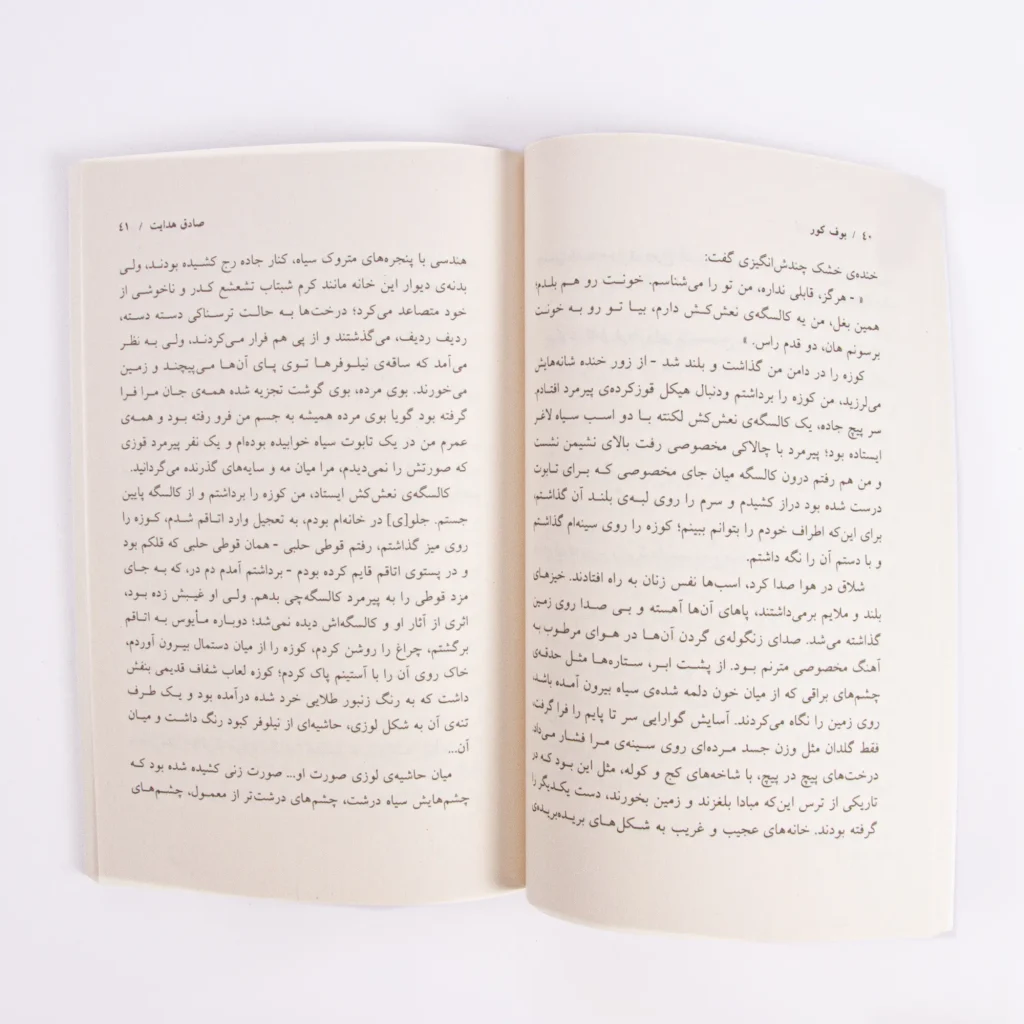 ٤٠ / بوف کور
خنده‌ی خشک چندش‌انگیزی گفت:
« - هرگز، قابلی نداره، من تو را می‌شناسم. خونت رو هم بلدم،
همین بغل، من یه کالسگه‌ی نعش‌کش دارم، بیا تو رو به خونت
برسونم هان، دو قدم راس. »
کوزه را در دامن من گذاشت و بلند شد - از زور خنده شانه‌هایش
می‌لرزید، من کوزه را برداشتم ودنبال هیکل قوزکرده‌ی پیرمرد افتادم.
سر پیچ جاده، یک کالسگه‌ی نعش‌کش لکنته با دو اسب سیاه لاغر
ایستاده بود؛ پیرمرد با چالاکی مخصوصی رفت بالای نشیمن نشست
و من هم رفتم درون کالسگه میان جای مخصوصی که برای تابوت
درست شده بود دراز کشیدم و سرم را روی لبه‌ی بلند آن گذاشتم،
برای این‌که اطراف خودم را بتوانم ببینم؛ کوزه را روی سینه‌ام گذاشتم
و با دستم آن را نگه داشتم.
شلاق در هوا صدا کرد، اسب‌ها نفس زنان به راه افتادند. خیزهای
بلند و ملایم برمی‌داشتند، پاهای آن‌ها آهسته و بی صدا روی زمین
گذاشته می‌شد. صدای زنگوله‌ی گردن آن‌ها در هوای مرطوب به
آهنگ مخصوصی مترنم بود. از پشت ابر، ستاره‌ها مثل حدقه‌ی
چشم‌های براقی که از میان خون دلمه شده‌ی سیاه بیرون آمده باشد،
روی زمین را نگاه می‌کردند. آسایش گوارایی سر تا پایم را فرا گرفت،
فقط گلدان مثل وزن جسد مرده‌ای روی سینه‌ی مرا فشار می‌داد.
درخت‌های پیچ در پیچ، با شاخه‌های کج و کوله، مثل این بود که در
تاریکی از ترس این‌که مبادا بلغزند و زمین بخورند، دست یکدیگر را
گرفته بودند. خانه‌های عجیب و غریب به شکل‌های بریده‌بریده‌ی
صادق هدایت / ٤١
هندسی با پنجره‌های متروک سیاه، کنار جاده رج کشیده بودند، ولی
بدنه‌ی دیوار این خانه مانند کرم شبتاب تشعشع کدر و ناخوشی از
خود متصاعد می‌کرد؛ درخت‌ها به حالت ترسناکی دسته دسته،
ردیف ردیف، می‌گذشتند و از پی هم فرار می‌کردند، ولی به نظر
می‌آمد که ساقه‌ی نیلوفرها توی پای آن‌ها می‌پیچند و زمین
می‌خورند. بوی مرده، بوی گوشت تجزیه شده همه‌ی جان مرا فرا
گرفته بود گویا بوی مرده همیشه به جسم من فرو رفته بود و همه‌ی
عمرم من در یک تابوت سیاه خوابیده بوده‌ام و یک نفر پیرمرد قوزی
که صورتش را نمی‌دیدم، مرا میان مه و سایه‌های گذرنده می‌گردانید.
کالسگه‌ی نعش‌کش ایستاد، من کوزه را برداشتم و از کالسگه پایین
جستم. جلو[ی] در خانه‌ام بودم، به تعجیل وارد اتاقم شدم، کوزه را
روی میز گذاشتم، رفتم قوطی حلبی - همان قوطی حلبی که قلکم بود
و در پستوی اتاقم قایم کرده بودم - برداشتم آمدم دم در، که به جای
مزد قوطی را به پیرمرد کالسگه‌چی بدهم. ولی او غیبش زده بود،
اثری از آثار او و کالسگه‌اش دیده نمی‌شد؛ دوباره مأیوس به اتاقم
برگشتم، چراغ را روشن کردم، کوزه را از میان دستمال بیرون آوردم،
خاک روی آن را با آستینم پاک کردم؛ کوزه لعاب شفاف قدیمی بنفش
داشت که به رنگ زنبور طلایی خرد شده درآمده بود و یک طرف
تنه‌ی آن به شکل لوزی، حاشیه‌ای از نیلوفر کبود رنگ داشت و میان
آن...
میان حاشیه‌ی لوزی صورت او... صورت زنی کشیده شده بود که
چشم‌هایش سیاه درشت، چشم‌های درشت‌تر از معمول، چشم‌های